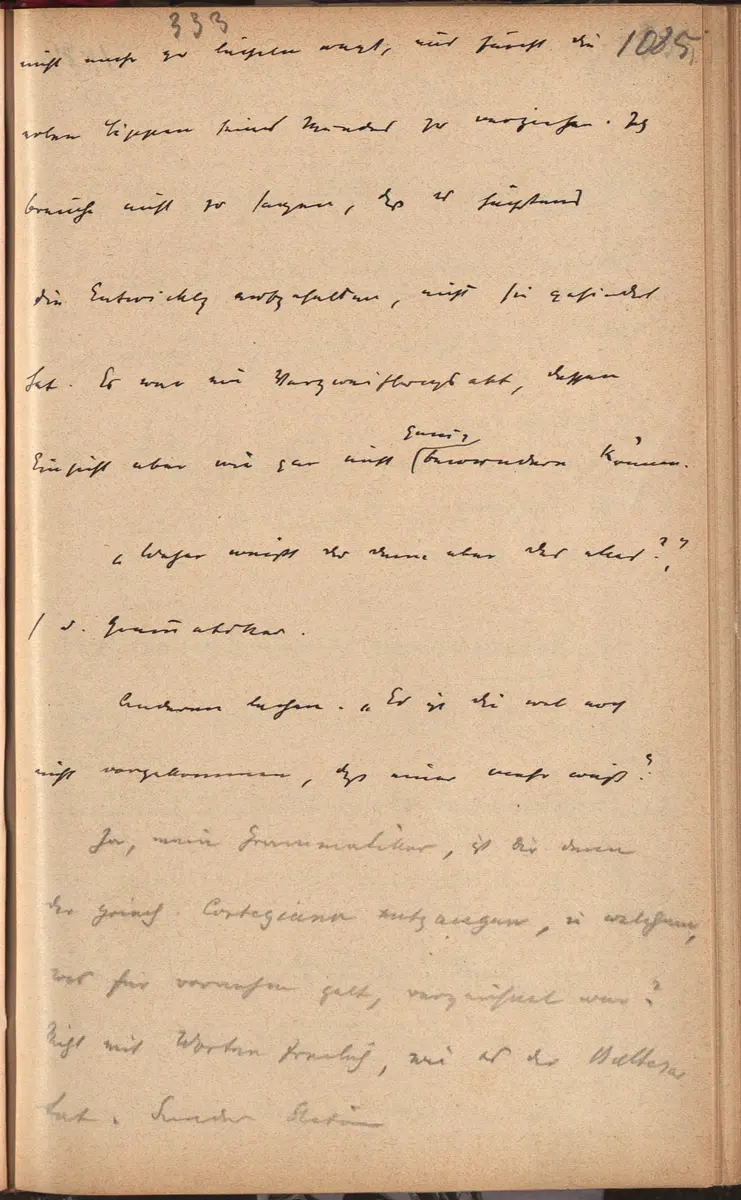 333
1085
nicht mehr zu lächeln wagt, und darf die
Lippen seines Mundes zu verziehen. Ich
brauche nicht zu sagen, daß es
die Entwicklg aufzuhalten, nicht sie gehindert
hat. Es war ein Verzweiflungsakt, dessen
aber wir gar nicht
genug
bewundern können.
„Woher weißt du denn aber das alles?",
s. d. Grammatiker.
Anderen lachen. „Es ist dir wol noch
nicht vorgekommen, daß einer mehr weiß?
Ja, mein Grammatiker, ist dir denn
der griech. Cortegiano entgangen, in welchem,
was für vornehm galt, verzeichnet war?
Nicht mit Worten freilich, wie es der Balthasar
tat. Sondern